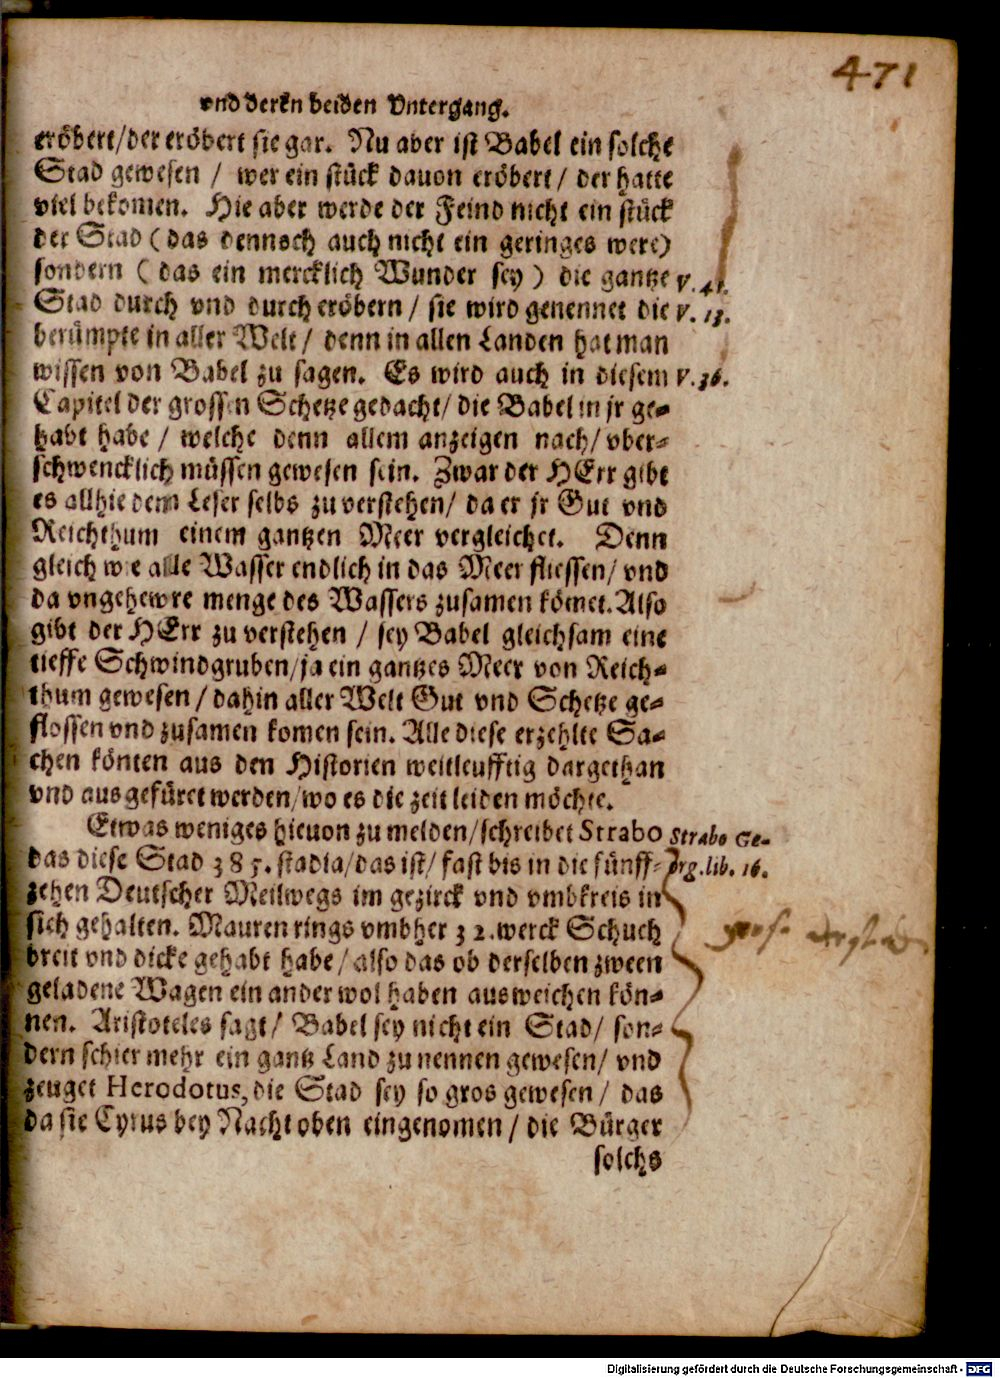 471
vnd derẽn beiden Vntergang.
eröbert/der eröbert sie gar. Nu aber ist Babel ein solche
Stad gewesen / wer ein stück dauon eröbert / der hatte
viel bekomen. Hie aber werde der Feind nicht ein stück
der Stad (das dennoch auch nicht ein geringes were)
sondern (das ein mercklich Wunder sey) die gantze v. 41.
Stad durch vnd durch eröbern / sie wird genennet die v. 13.
berümpte in aller Welt / denn in allen Landen hat man
wissen von Babel zu sagen. Es wird auch in diesem v. 36.
Capitel der grossen Schetze gedacht/ die Babel in jr ge⸗
habt habe / welche denn allem anzeigen nach/ vber⸗
schwencklich müssen gewesen sein. Zwar der HErr gibt
es allhie dem Leser selbs zu verstehen/ da er jr Gut vnd
Reichthum einem gantzen Meer vergleichet. Denn
gleich wie alle Wasser endlich in das Meer fliessen/ vnd
da vngehewre menge des Wassers zusamen kömet. Also
gibt der HErr zu verstehen / sey Babel gleichsam eine
tieffe Schwindgruben/ja ein gantzes Meer von Reich⸗
thum gewesen / dahin aller Welt Gut vnd Schetze ge⸗
flossen vnd zusamen komen sein. Alle diese erzehlte Sa⸗
chen könten aus den Historien weitleufftig dargethan
vnd ausgefüret werden/wo es die zeit leiden möchte.
Etwas weniges hieuon zu melden/schreibet Strabo Strabo Ge-
das diese Stad 385. stadia/das ist/ fast bis in die fünff⸗ org.lib. 16.
zehen Deutscher Meilwegs im gezirck vnd vmbkreis in
sich gehalten. Mauren rings vmbher 32. werck Schuch
breit vnd dicke gehabt habe / also das ob derselben zween
geladene Wagen ein ander wol haben ausweichen kön⸗
nen. Aristoteles sagt/ Babel sey nicht ein Stad/ son⸗
dern schier mehr ein gantz Land zu nennen gewesen/ vnd
zeuget Herodotus, die Stad sey so gros gewesen / das
da sie Cyrus bey Nacht oben eingenomen / die Bürger
solchs
Digitalisierung gefördert durch die Deutsche Forschungsgemeinschaft - DFG